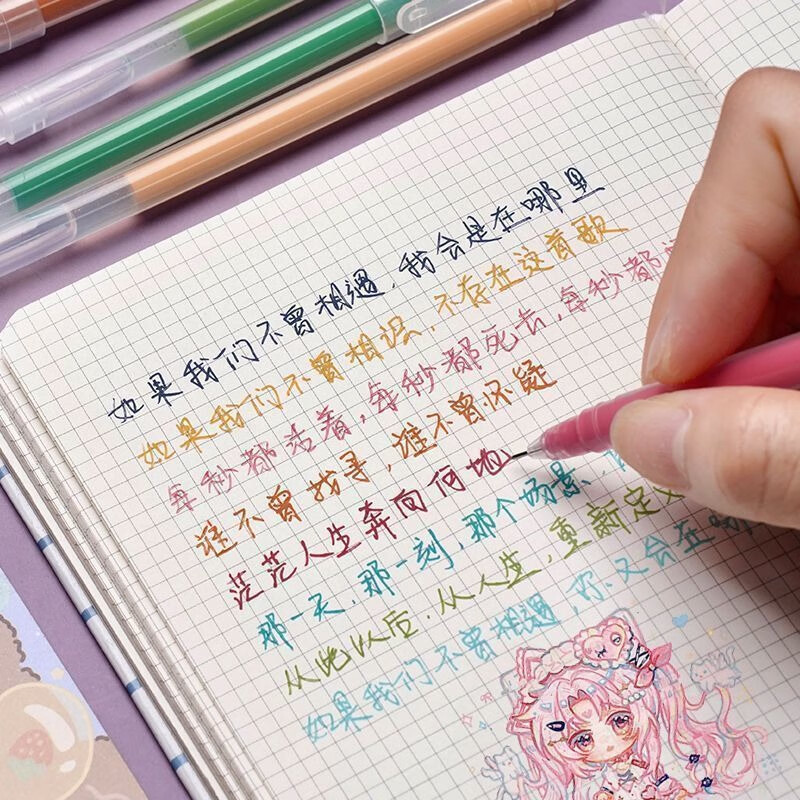 如果我们不曾相遇，我会是在哪里
如果我们不曾相识，不存在这首歌
每秒都活着，每秒都死去，每秒都
谁不曾找寻，谁不曾怀疑
茫茫人生奔向何地
那一天，那一刻，那个场景，
从此以后，从人生，重新定义
如果我们不曾相遇，你又会在哪